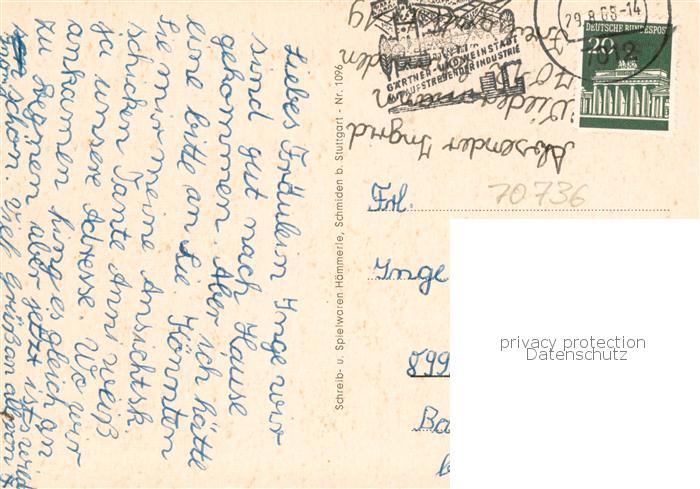 Liebes Fräulein Inge wir
sind gut nach Hause
gekommen. Aber ich hätte
eine bitte an Sie. Könnten
Sie mir meine Ansichtsk.
schicken Tante Anni weiß
ja unsere Adresse. Wo wir
ankamen fing es gleich an
zu Regnen aber jetzt ist es wieder
schön. Viele Grüße an alle von
Ingrid
Schreib- u. Spielwaren Hämmerle, Schmiden b. Stuttgart - Nr. 1096
Absender Ingrid
Wiedemann
GÄRTNER- UND WEINSTADT
AUFSTREBENDER INDUSTRIE
29.8.68-14
DEUTSCHE BUNDESPOST
20
70736
Frl.
Inge
899
Ba
privacy protection
Datenschutz